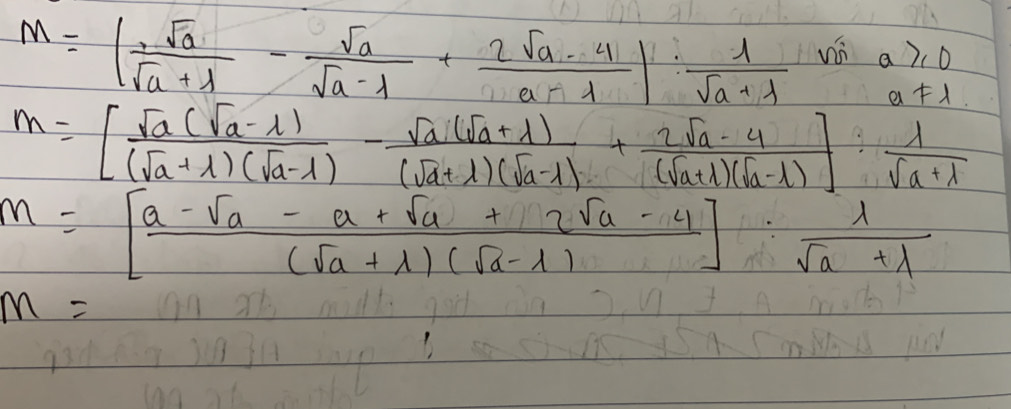 M = [√a/(√a + 1) - √a/(√a - 1) + (2√a - 4)/(a - 1)] : 1/(√a + 1) với a ≥ 0 a ≠ 1
M = [√a(√a - 1)/((√a + 1)(√a - 1)) - √a(√a + 1)/((√a + 1)(√a - 1)) + (2√a - 4)/((√a + 1)(√a - 1))] : 1/(√a + 1)
M = [(a - √a - a + √a + 2√a - 4)/((√a + 1)(√a - 1))] : 1/(√a + 1)
M =